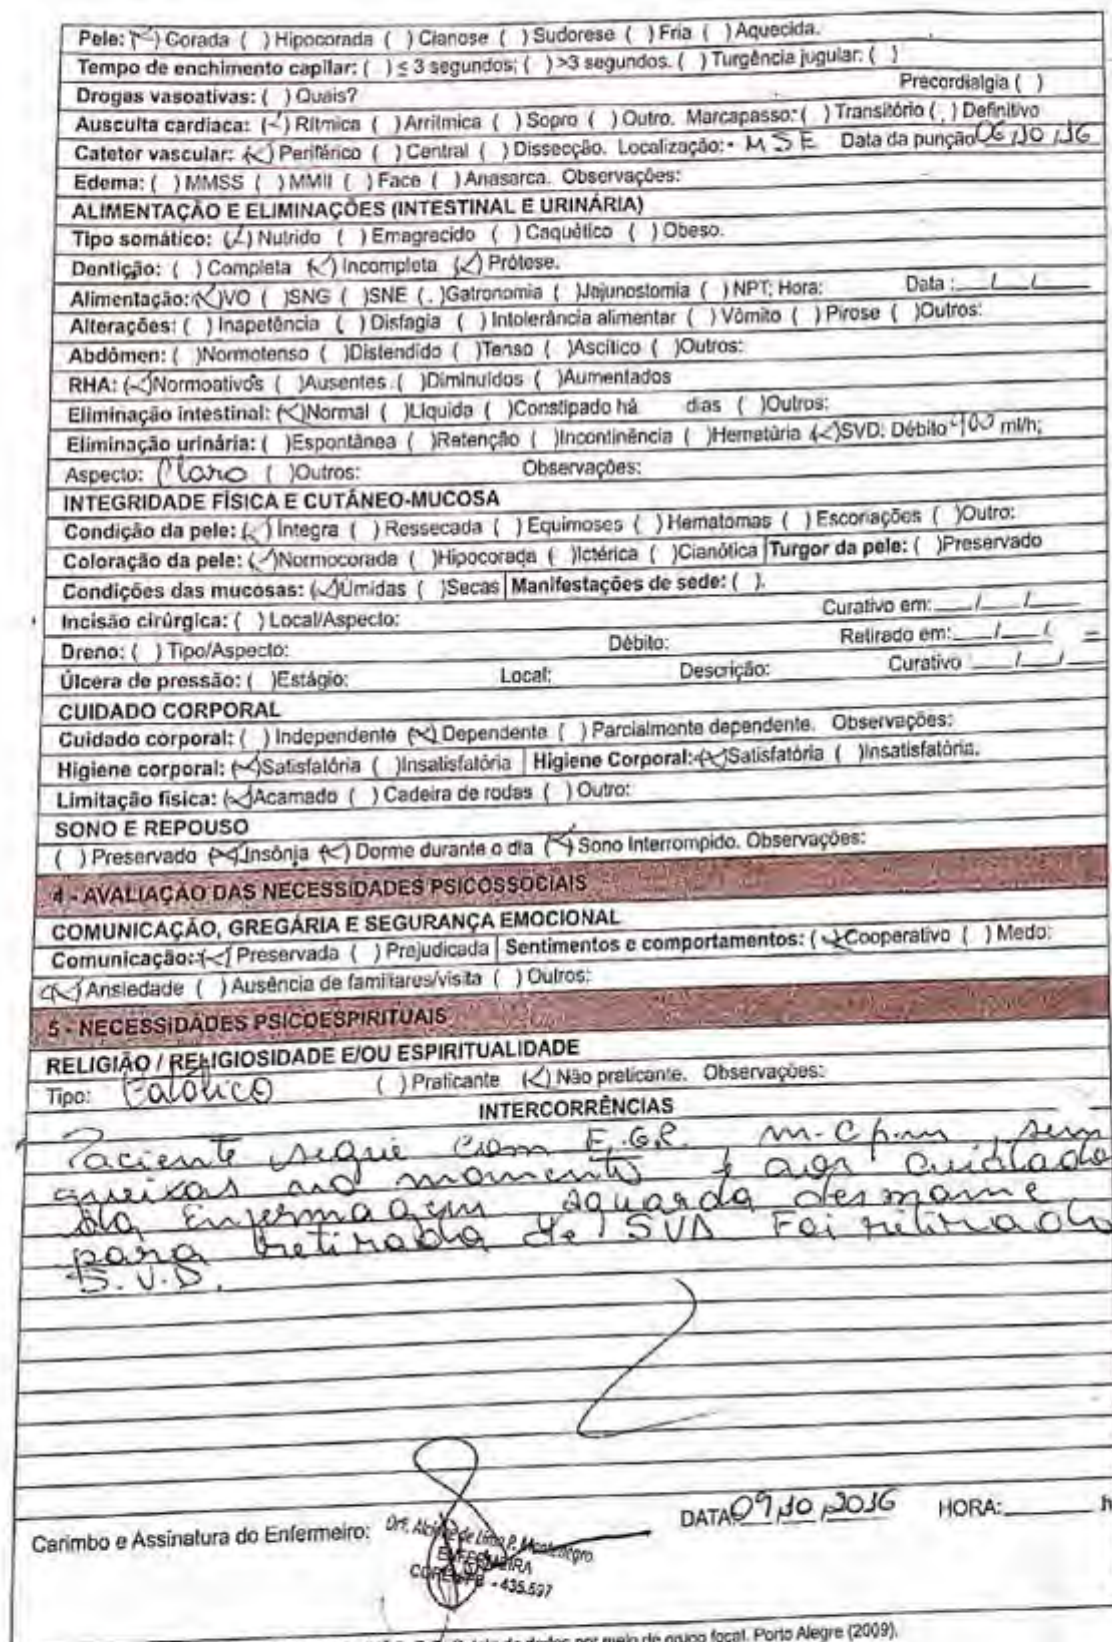 Pele: (✓) Corada ( ) Hipocorada ( ) Cianose ( ) Sudorese ( ) Fria ( ) Aquecida.
Tempo de enchimento capilar: ( ) ≤ 3 segundos; ( ) >3 segundos. ( ) Turgência jugular: ( )
Drogas vasoativas: ( ) Quais? Precordialgia ( )
Ausculta cardíaca: (✓) Rítmica ( ) Arrítmica ( ) Sopro ( ) Outro. Marcapasso: ( ) Transitório ( ) Definitivo
Cateter vascular: (✓) Periférico ( ) Central ( ) Dissecção. Localização: MSE Data da punção 06/10/16
Edema: ( ) MMSS ( ) MMII ( ) Face ( ) Anasarca. Observações:
ALIMENTAÇÃO E ELIMINAÇÕES (INTESTINAL E URINÁRIA)
Tipo somático: (✓) Nutrido ( ) Emagrecido ( ) Caquético ( ) Obeso.
Dentição: ( ) Completa (✓) Incompleta (✓) Prótese.
Alimentação: (✓)VO ( )SNG ( )SNE ( )Gatronomia ( )Jejunostomia ( ) NPT; Hora: Data :__/__/__
Alterações: ( ) Inapetência ( ) Disfagia ( ) Intolerância alimentar ( ) Vômito ( ) Pirose ( )Outros:
Abdômen: ( )Normotenso ( )Distendido ( )Tenso ( )Ascítico ( )Outros:
RHA: (✓)Normoativos ( )Ausentes ( )Diminuídos ( )Aumentados
Eliminação intestinal: (✓)Normal ( )Líquida ( )Constipado há dias ( )Outros:
Eliminação urinária: ( )Espontânea ( )Retenção ( )Incontinência ( )Hematúria (✓)SVD: Débito 400 ml/h;
Aspecto: Claro ( )Outros: Observações:
INTEGRIDADE FÍSICA E CUTÂNEO-MUCOSA
Condição da pele: (✓) Integra ( ) Ressecada ( ) Equimoses ( ) Hematomas ( ) Escoriações ( )Outro:
Coloração da pele: (✓)Normocorada ( )Hipocorada ( )Ictérica ( )Cianótica Turgor da pele: ( )Preservado
Condições das mucosas: (✓)Úmidas ( )Secas Manifestações de sede: ( ).
Incisão cirúrgica: ( ) Local/Aspecto: Curativo em:__/__/__
Dreno: ( ) Tipo/Aspecto: Débito: Retirado em:__/__/__
Úlcera de pressão: ( )Estágio: Local: Descrição: Curativo __/__/__
CUIDADO CORPORAL
Cuidado corporal: ( ) Independente (✓) Dependente ( ) Parcialmente dependente. Observações:
Higiene corporal: (✓)Satisfatória ( )Insatisfatória Higiene Corporal: (✓)Satisfatória ( )Insatisfatória.
Limitação física: (✓)Acamado ( ) Cadeira de rodas ( ) Outro:
SONO E REPOUSO
( ) Preservado (✓)Insônia (✓) Dorme durante o dia (✓) Sono Interrompido. Observações:
4 - AVALIAÇÃO DAS NECESSIDADES PSICOSSOCIAIS
COMUNICAÇÃO, GREGÁRIA E SEGURANÇA EMOCIONAL
Comunicação: (✓) Preservada ( ) Prejudicada Sentimentos e comportamentos: (✓)Cooperativo ( ) Medo:
(✓) Ansiedade ( ) Ausência de familiares/visita ( ) Outros:
5 - NECESSIDADES PSICOESPIRITUAIS
RELIGIÃO / RELIGIOSIDADE E/OU ESPIRITUALIDADE
Tipo: Católico ( ) Praticante (✓) Não praticante. Observações:
INTERCORRÊNCIAS
Paciente segue com E.G.R. sem
queixas no momento e aos cuidado
da Enfermagem aguarda desmame
para retirada de SVD Foi retirado
S.V.D.
DATA 09/10/2016 HORA:____h
Carimbo e Assinatura do Enfermeiro:
ENFERMEIRA
- 435.597
de dados por meio de grupo focal. Porto Alegre (2009).